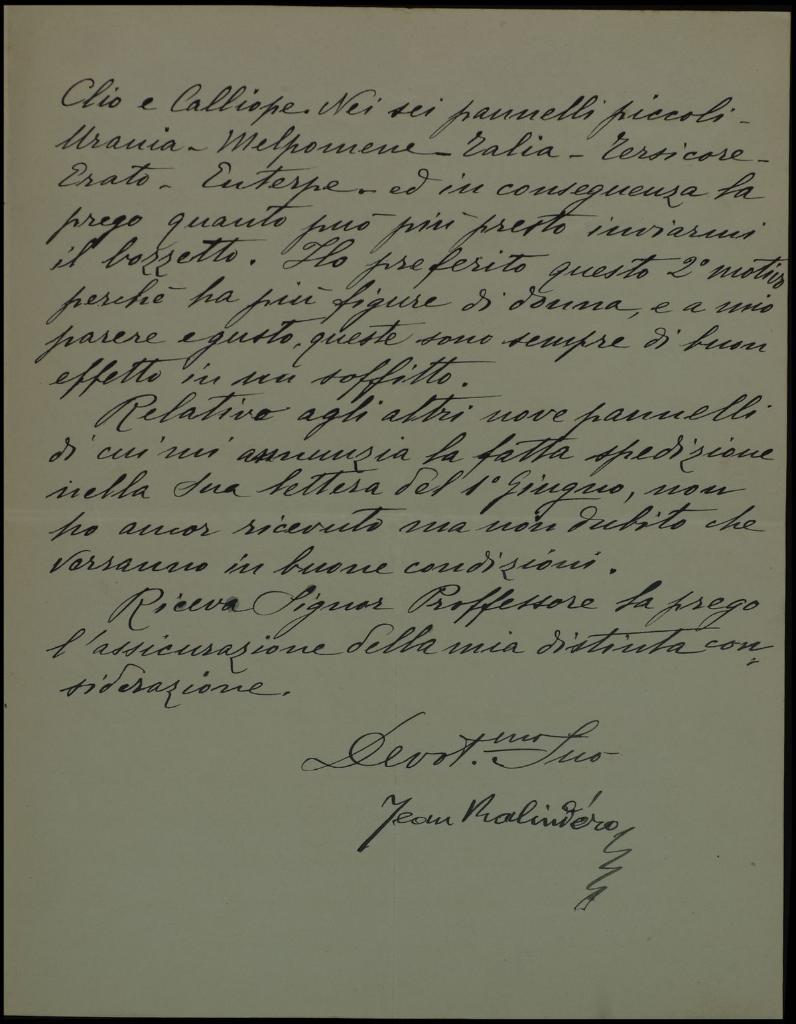 Clio e Calliope. Nei sei pannelli piccoli -
Urania - Melpomene - Talia - Tersicore -
Erato - Euterpe - ed in conseguenza La
prego quanto può più presto inviarmi
il bozzetto. Ho preferito questo 2° motivo
perchè ha più figure di donna, e a mio
parere e gusto, queste sono sempre di buon
effetto in un soffitto.
Relativo agli altri nove pannelli
di cui mi annunzia la fatta spedizione
nella Sua lettera del 1° Giugno, non
ho ancor ricevuto ma non dubito che
verranno in buone condizioni.
Riceva Signor Proffessore La prego
l'assicurazione della mia distinta con„
siderazione.
Devot.mo Suo
Jean